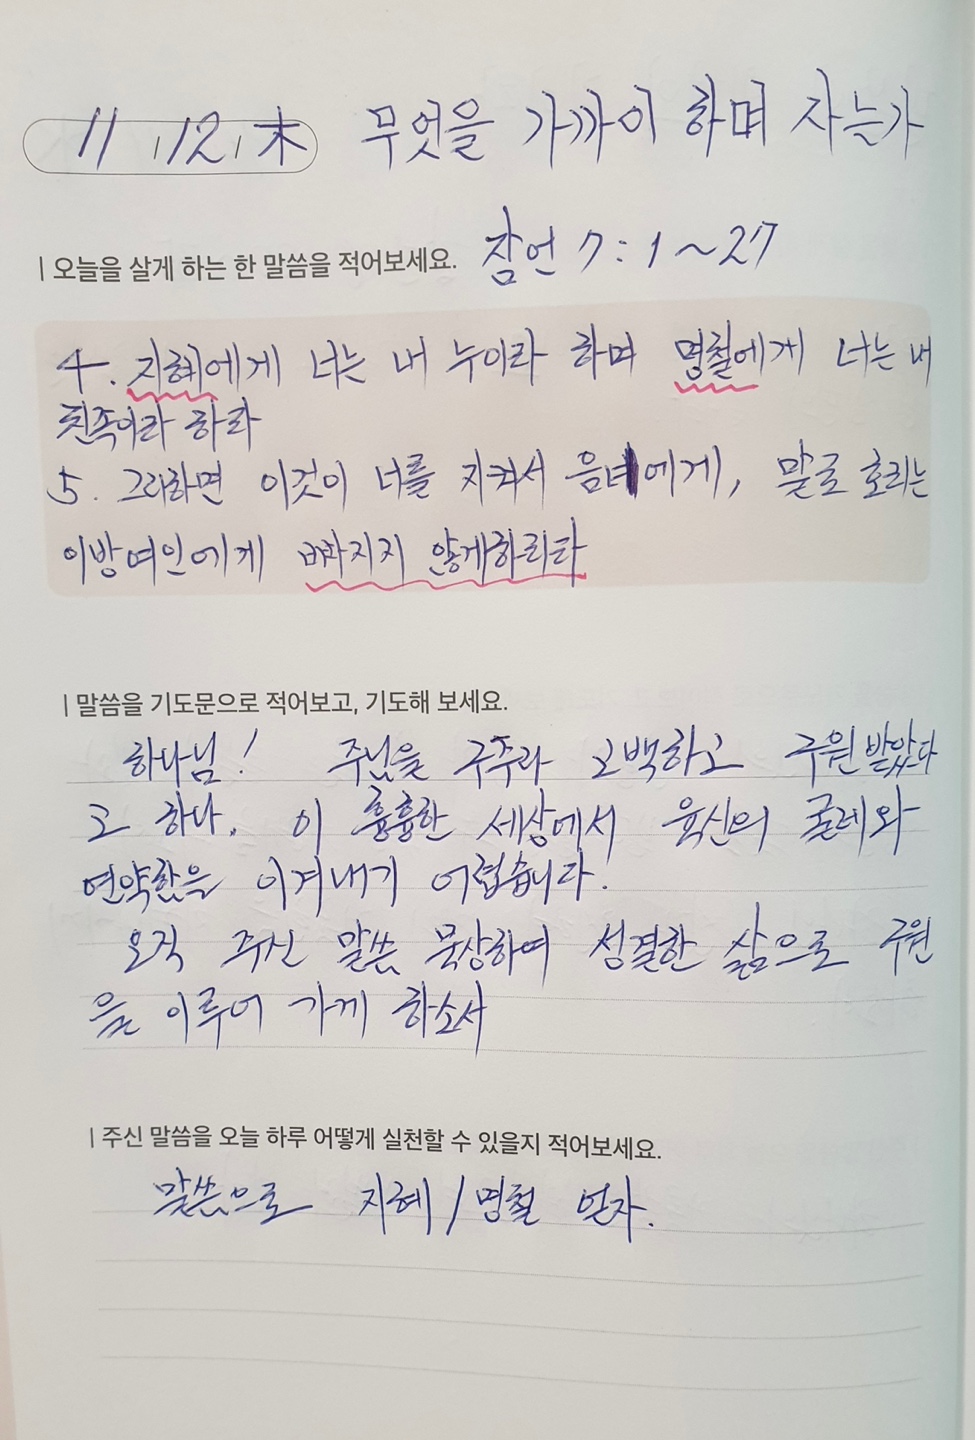 11. 12. 木 무엇을 가까이 하며 사는가
| 오늘을 살게 하는 한 말씀을 적어보세요. 잠언 7:1~27
4. 지혜에게 너는 내 누이라 하며 명철에게 너는 내
친족이라 하라
5. 그리하면 이것이 너를 지켜서 음녀에게, 말로 호리는
이방여인에게 빠지지 않게하리라
| 말씀을 기도문으로 적어보고, 기도해 보세요.
하나님! 주님을 구주라 고백하고 구원받았다
고 하나, 이 흉흉한 세상에서 육신의 굴레와
연약함을 이겨내기 어렵습니다.
오직 주신 말씀 묵상하여 성결한 삶으로 구원
을 이루어 가게 하소서
| 주신 말씀을 오늘 하루 어떻게 실천할 수 있을지 적어보세요.
말씀으로 지혜/명철 얻자.